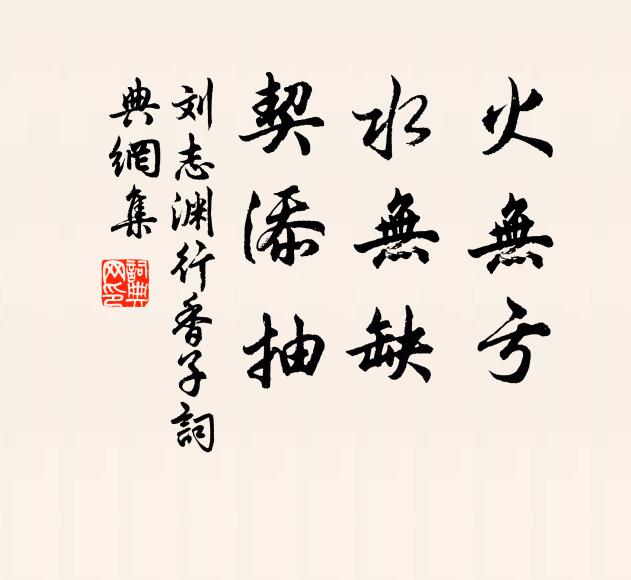 火無亏
水無缺
契添抽
刘志渊行香子詞
典網集
詞典网印